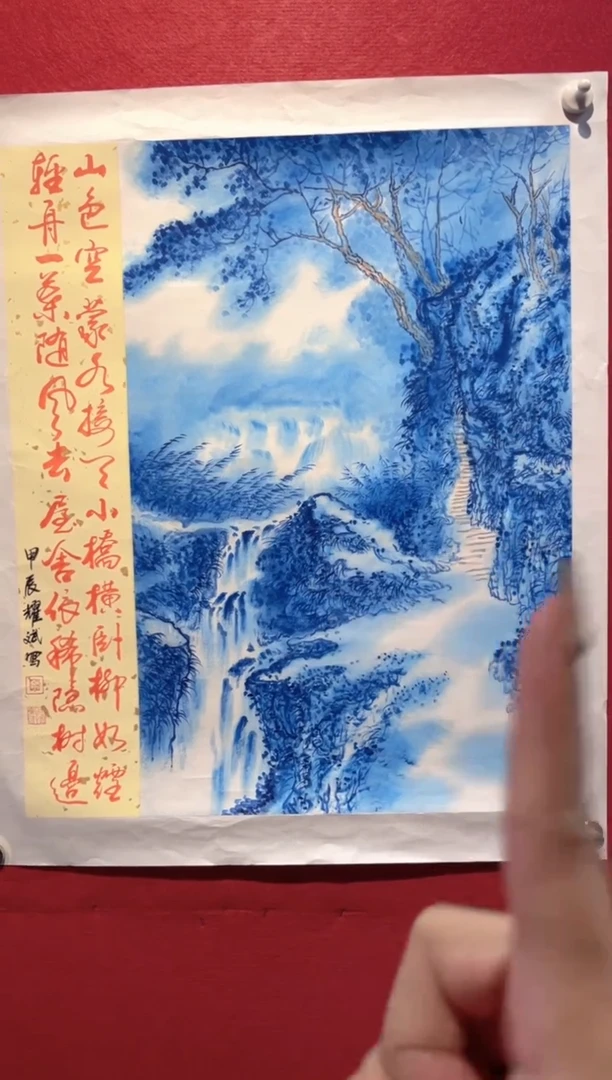 山色空蒙水接天小橋橫臥柳如煙
輕舟一葉隨風去屋舍依稀隱樹邊
甲辰耀斌寫